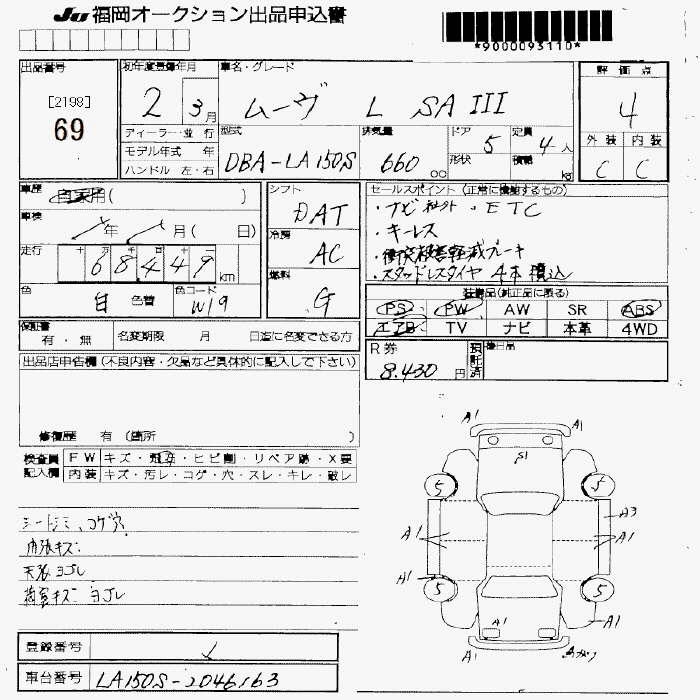 JU 福岡オークション出品申込書
*9000093110*
出品番号 初年度登録年月 車名・グレード 評価点
[2198] 2 3月 ムーヴ L SAIII 4
69
ディーラー・並行 型式 排気量 ドア 5 定員 4人 外装 内装
モデル年式 年 DBA-LA150S 660 cc 形状 積載 kg C C
ハンドル 左・右
車歴 自家用( ) シフト DAT セールスポイント(正常に機能するもの)
車検 年 月( 日) ・ナビ社外 ・ETC
冷房 AC ・キーレス
走行 68,449km ・衝突被害軽減ブレーキ
燃料 G ・スタッドレスタイヤ 4本積込
色 白 色替 色コード W19 装備品(純正品に限る)
PS PW AW SR ABS
エアB TV ナビ 本革 4WD
保証書 有・無 名変期限 月 日迄に名変できる方
R券 8.430円 預託済 後日品
出品店申告欄(不良内容・欠品など具体的に記入して下さい)
修復歴 有 (箇所 )
検査員記入欄 FW キズ・飛石・ヒビ割・リペア跡・X要
内装 キズ・汚レ・コゲ・穴・スレ・キレ・破レ
シートシミ、コゲ穴
内張キズ
天張ヨゴレ
荷室キズ ヨゴレ
A1 A1
S1
5 5
A3
A1 A1
A1
5 5
A1 A1
登録番号
車台番号 LA150S-2046163